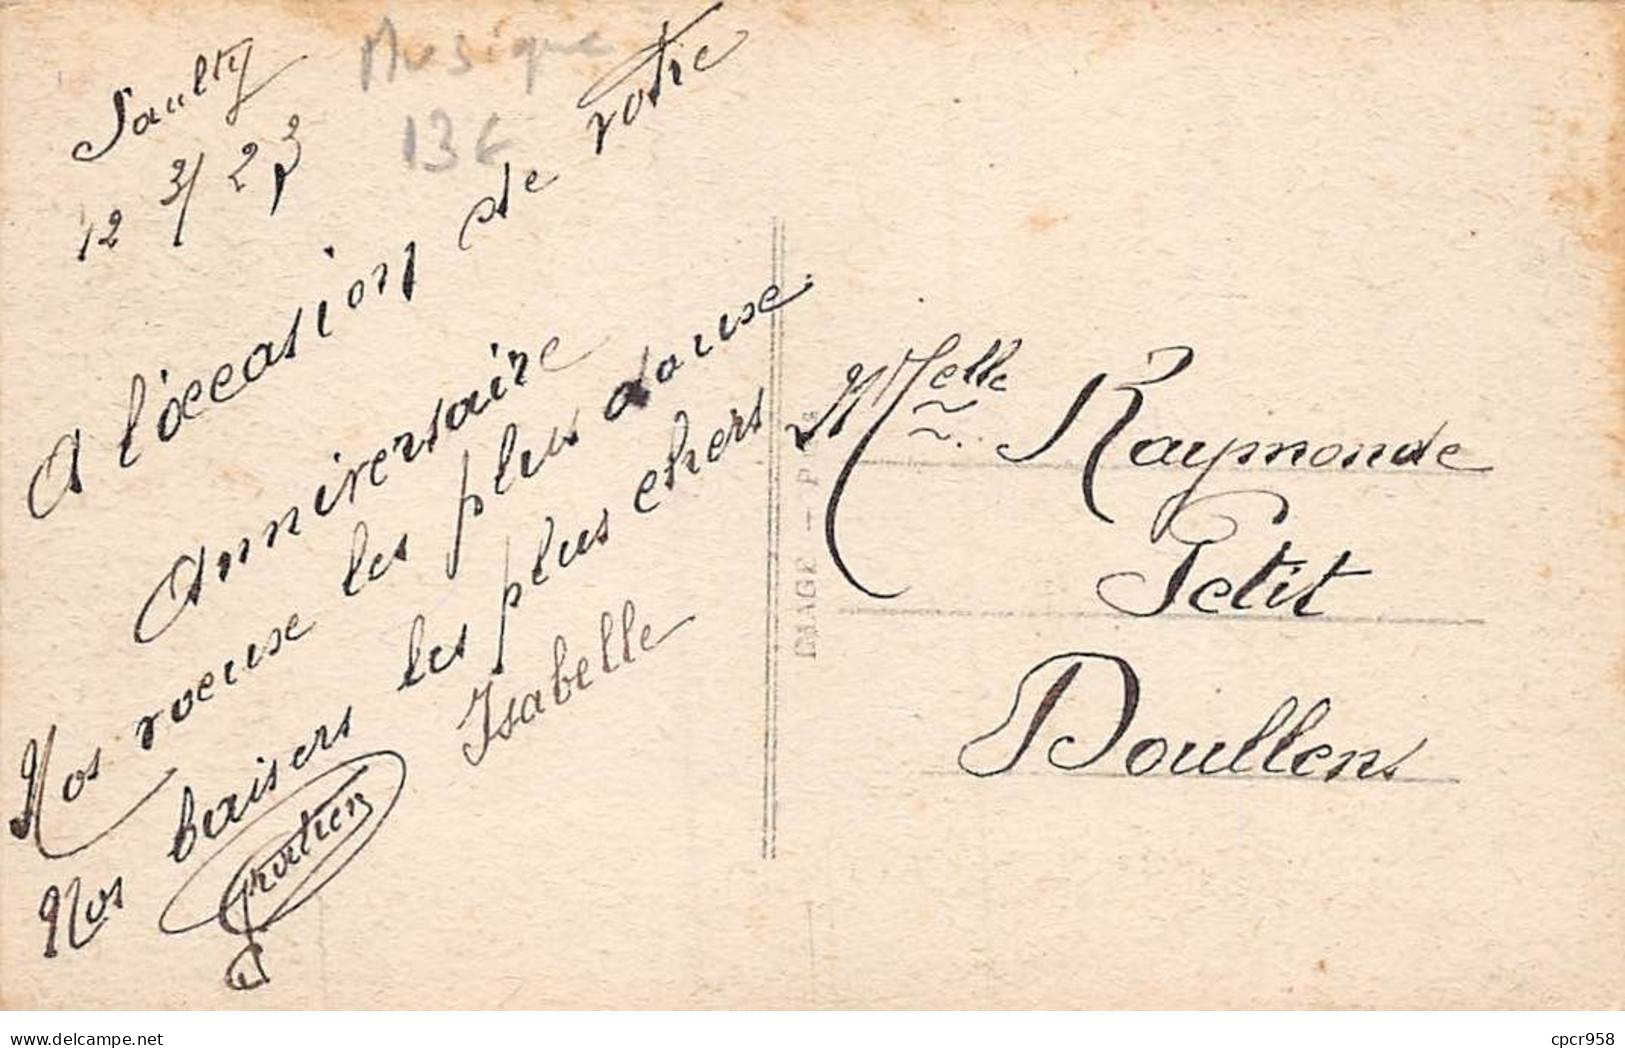 Saulty
12 3/ 23
Musique
13€
A l'occasion de votre
Anniversaire
Nos voeuse les plus douse
Nos baisers les plus chers
Isabelle
IMAGE — P
Melle Raymonde
Petit
Doullens
www.delcampe.net
cpcr958